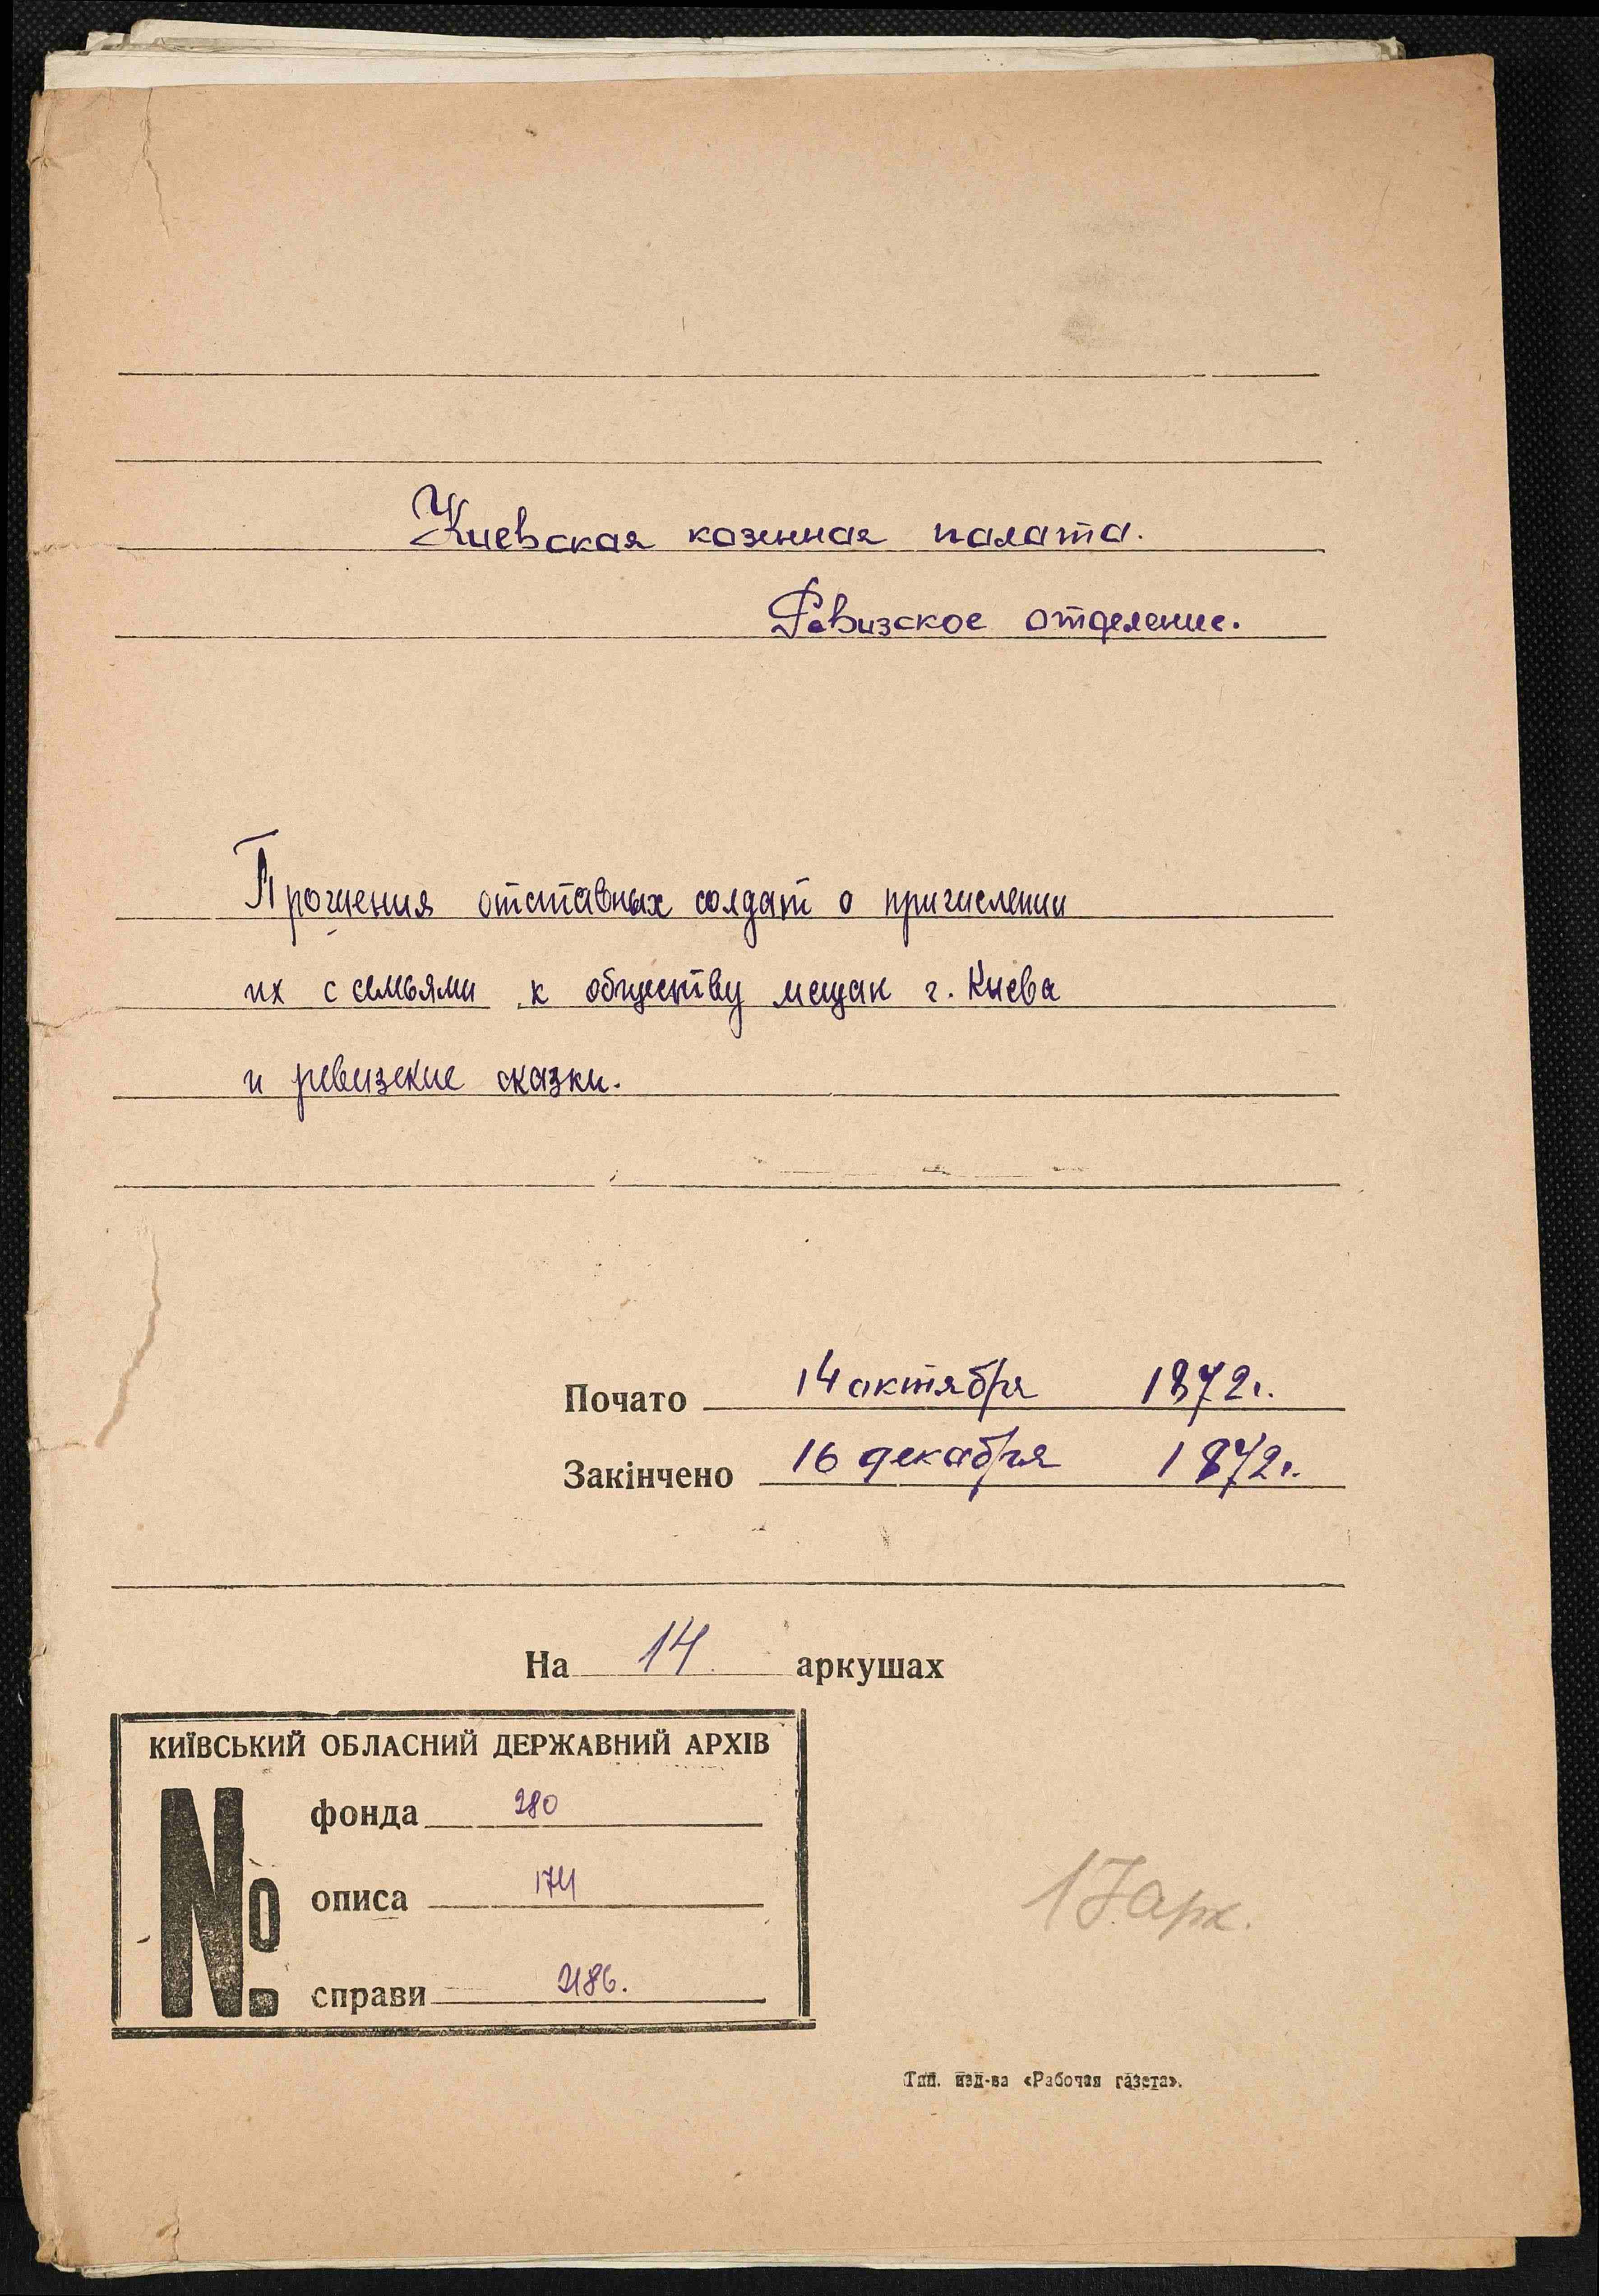 Киевская казенная палата.
Ревизское отделение.
Прошения отставных солдат о причислении
их с семьями к обществу мещан г. Киева
и ревизские сказки.
Почато 14 октября 1872г.
Закінчено 16 декабря 1872г.
На 14 аркушах
КИЇВСЬКИЙ ОБЛАСНИЙ ДЕРЖАВНИЙ АРХІВ
№
фонда 280
описа 174
справи 2186.
17 арк.
Тип. изд-ва «Рабочая газета».